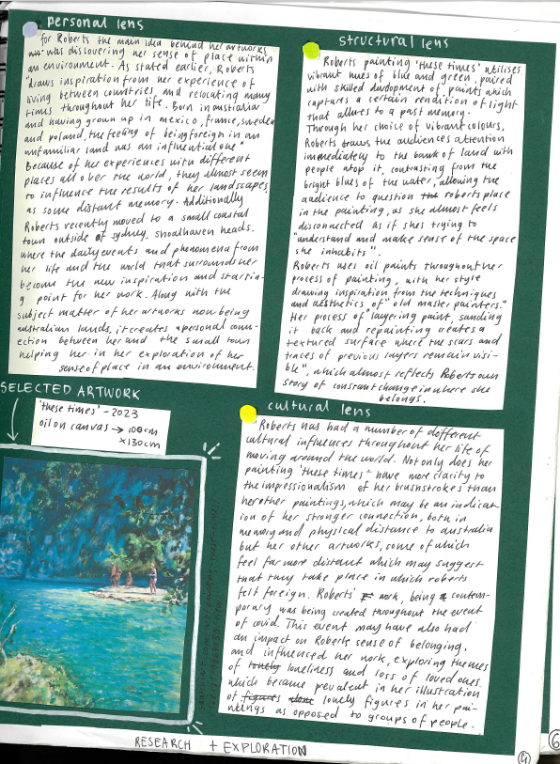 personal lens
for Roberts the main idea behind her artworks
was discovering her sense of place within
an environment. As stated earlier, Roberts
"draws inspiration from her experience of
living between countries, and relocating many
times throughout her life. Born in australia
and having grown up in mexico, france, sweden
and poland, the feeling of being foreign in an
unfamiliar land was an influential one"
Because of her experiences with different
places all over the world, they almost seem
to influence the results of her landscapes
as some distant memory. Additionally
Roberts recently moved to a small coastal
town outside of sydney. Shoalhaven heads.
where the daily events and phenomena from
her life and the world that surrounds her
become the new inspiration and startin-
g point for her work. Along with the
subject matter of her artworks now being
australian lands, it creates a personal conn-
ection between her and the small town
helping her in her exploration of her
sense of place in an environment.
structural lens
Roberts painting 'these times' utilises
vibrant hues of blue and green, paired
with skilled of paints which
captures a certain rendition of light
that allures to a past memory.
Through her choice of vibrant colours,
Roberts draws the audiences attention
immediately to the bank of land with
people atop it, contrasting from the
bright blues of the water, allowing the
audience to question the roberts place
in the painting, as she almost feels
disconnected as if she's trying to
"understand and make sense of the space
she inhabits".
Roberts uses oil paints throughout her
process of painting, with her style
drawing inspiration from the techniques
and aesthetics of "old master painters."
Her process of layering paint, sanding
it back and repainting creates a
textured surface where the scars and
traces of previous layers remain visi-
ble", which almost reflects Roberts own
story of constant change in where she
belongs.
SELECTED ARTWORK
'these times' - 2023
oil on canvas → 100cm
x 130cm
cultural lens
Roberts has had a number of different
cultural influences throughout her life of
moving around the world. Not only does her
painting 'these times' have more clarity to
the impressionalism of her brushstrokes than
her other paintings, which may be an indicat-
ion of her stronger connection, both in
memory and physical distance to australia
but her other artworks, some of which
feel far more distant which may suggest
that they take place in which roberts
felt foreign. Roberts' work, being a contem-
porary was being created throughout the event
of covid. This event may have also had
an impact on Roberts sense of belonging.
and influenced her work, exploring themes
of lonely loneliness and loss of loved ones.
which became prevalent in her illustration
of figures alone lonely figures in her pai-
ntings as opposed to groups of people.
RESEARCH + EXPLORATION